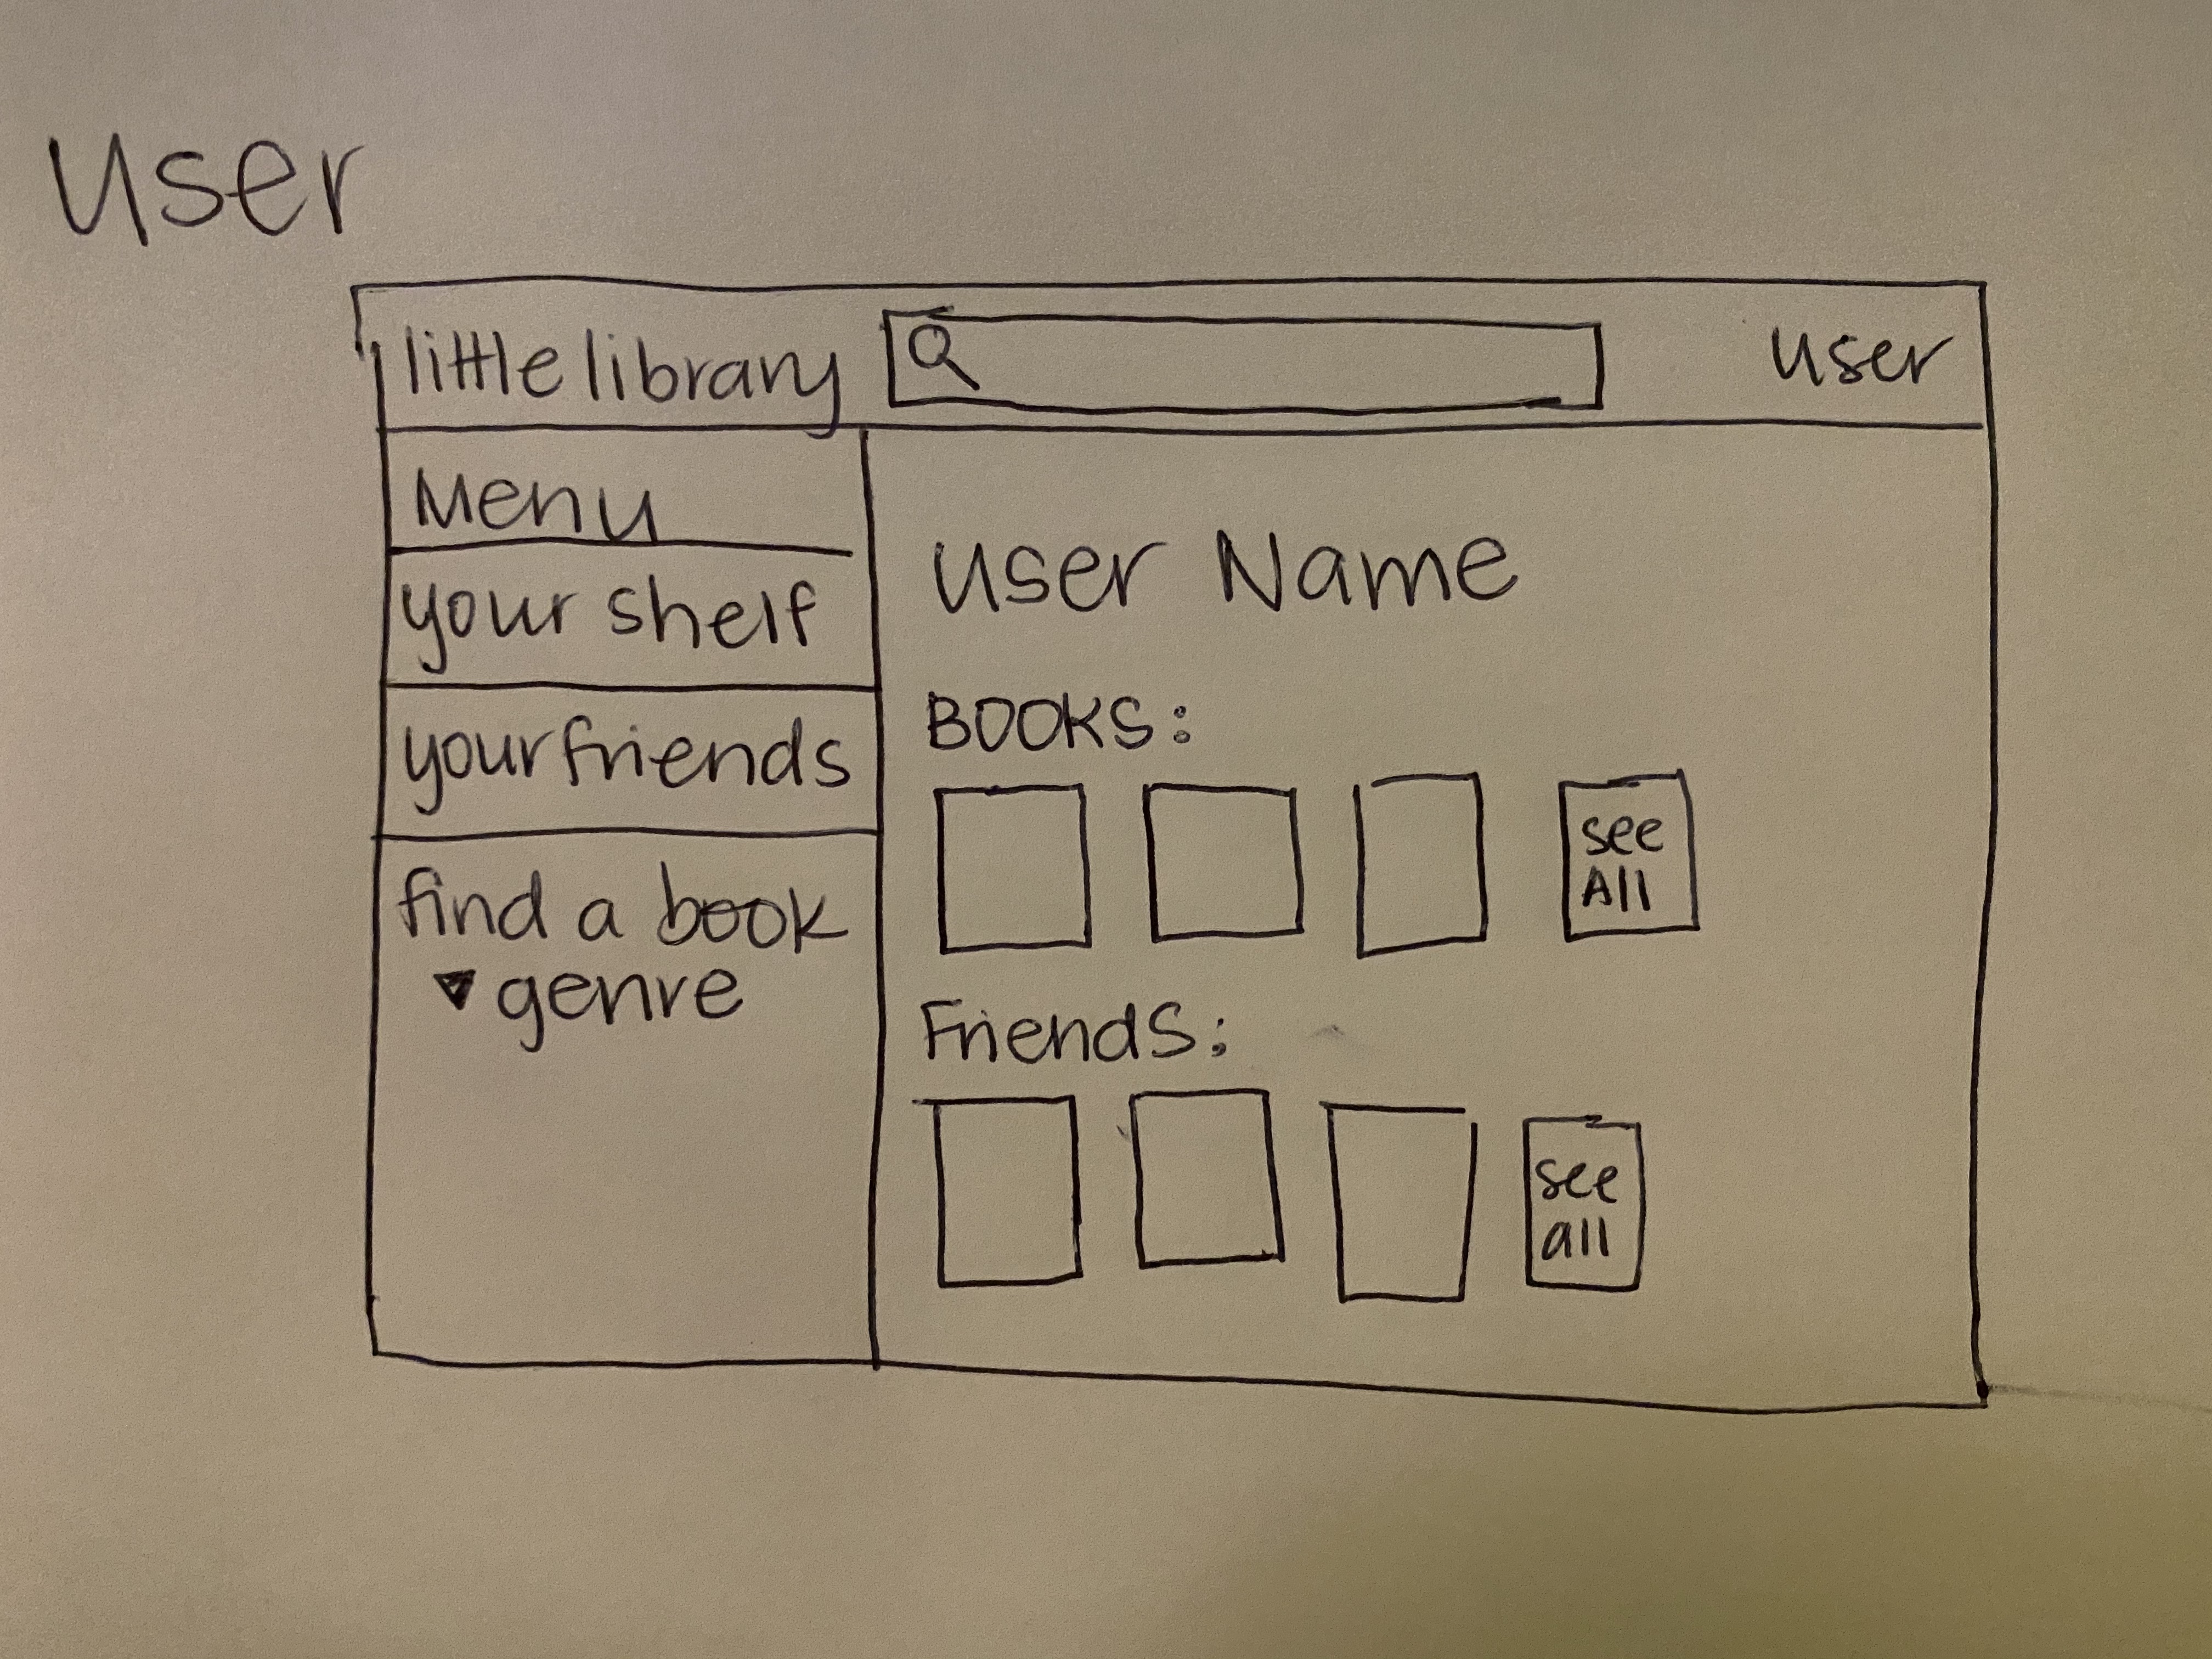 user
little library
user
Menu
your shelf
your friends
find a book
genre
User Name
Books:
see
All
Friends:
see
all